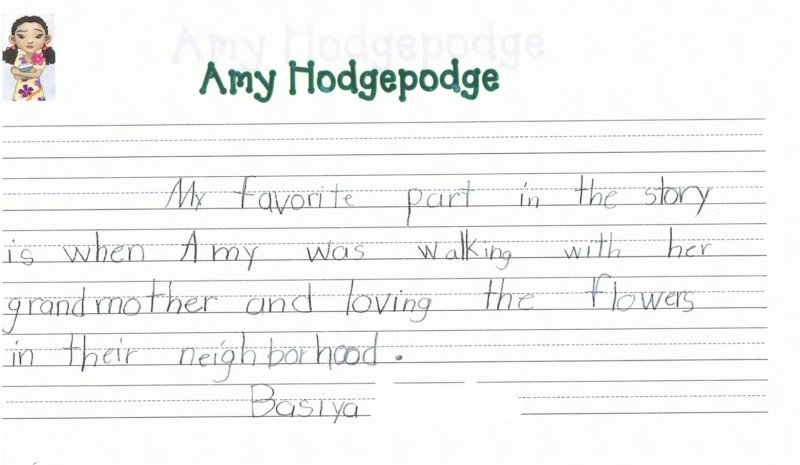 Amy Hodgepodge
My favorite part in the story
is when Amy was walking with her
grandmother and loving the flowers
in their neighborhood.
Basiya